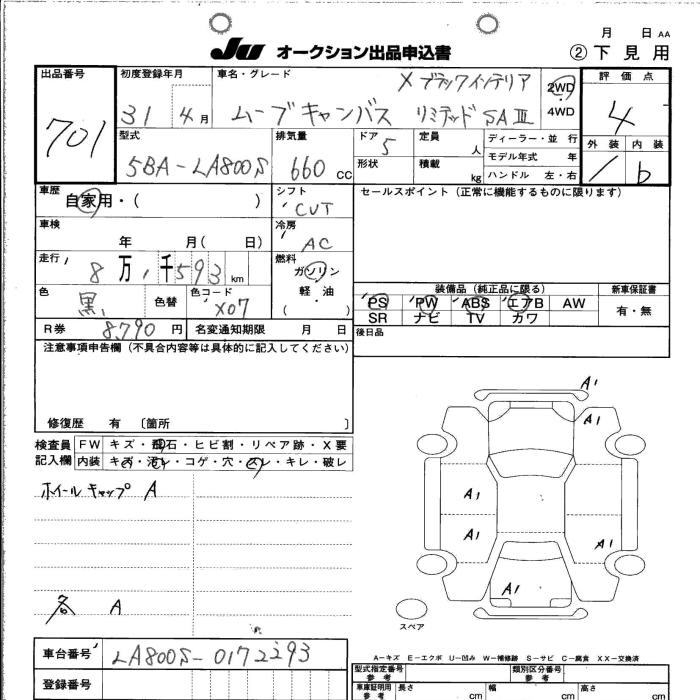 月 日 AA
JU オークション出品申込書 ②下見用
出品番号 701
初度登録年月 31 4月
車名・グレード X ブラックインテリア
ムーブキャンバス リミテッド SAⅢ
2WD 4WD
評価点 4
外装 1 内装 b
型式 5BA-LA800S
排気量 660 CC
ドア 5 定員 人
形状 積載 kg
ディーラー・並行
モデル年式 年
ハンドル 左・右
車歴 自家用・( )
シフト CVT
セールスポイント(正常に機能するものに限ります)
車検 年 月( 日)
冷房 AC
走行 8万1千593km
燃料 ガソリン 軽・油 ( )
色 黒 色替 色コード X07
装備品(純正品に限る) 新車保証書
PS PW ABS エアB AW 有・無
SR ナビ TV カワ
R券 8,790円 名変通知期限 月 日
後日品
注意事項申告欄(不具合内容等は具体的に記入してください)
修復歴 有 〔箇所 〕
検査員 FW キズ・飛石・ヒビ割・リペア跡・X要
記入欄 内装 キズ・汚レ・コゲ・穴・スレ・キレ・破レ
ホイールキャップ A
各 A
A1
A1
A1
A1
A1
A1
スペア
A-キズ E-エクボ U-凹み W-補修跡 S-サビ C-腐食 XX-交換済
車台番号 LA800S-0172293
登録番号
型式指定番号 参考 類別区分番号 参考
車庫証明用 参考 長さ cm 幅 cm 高さ cm